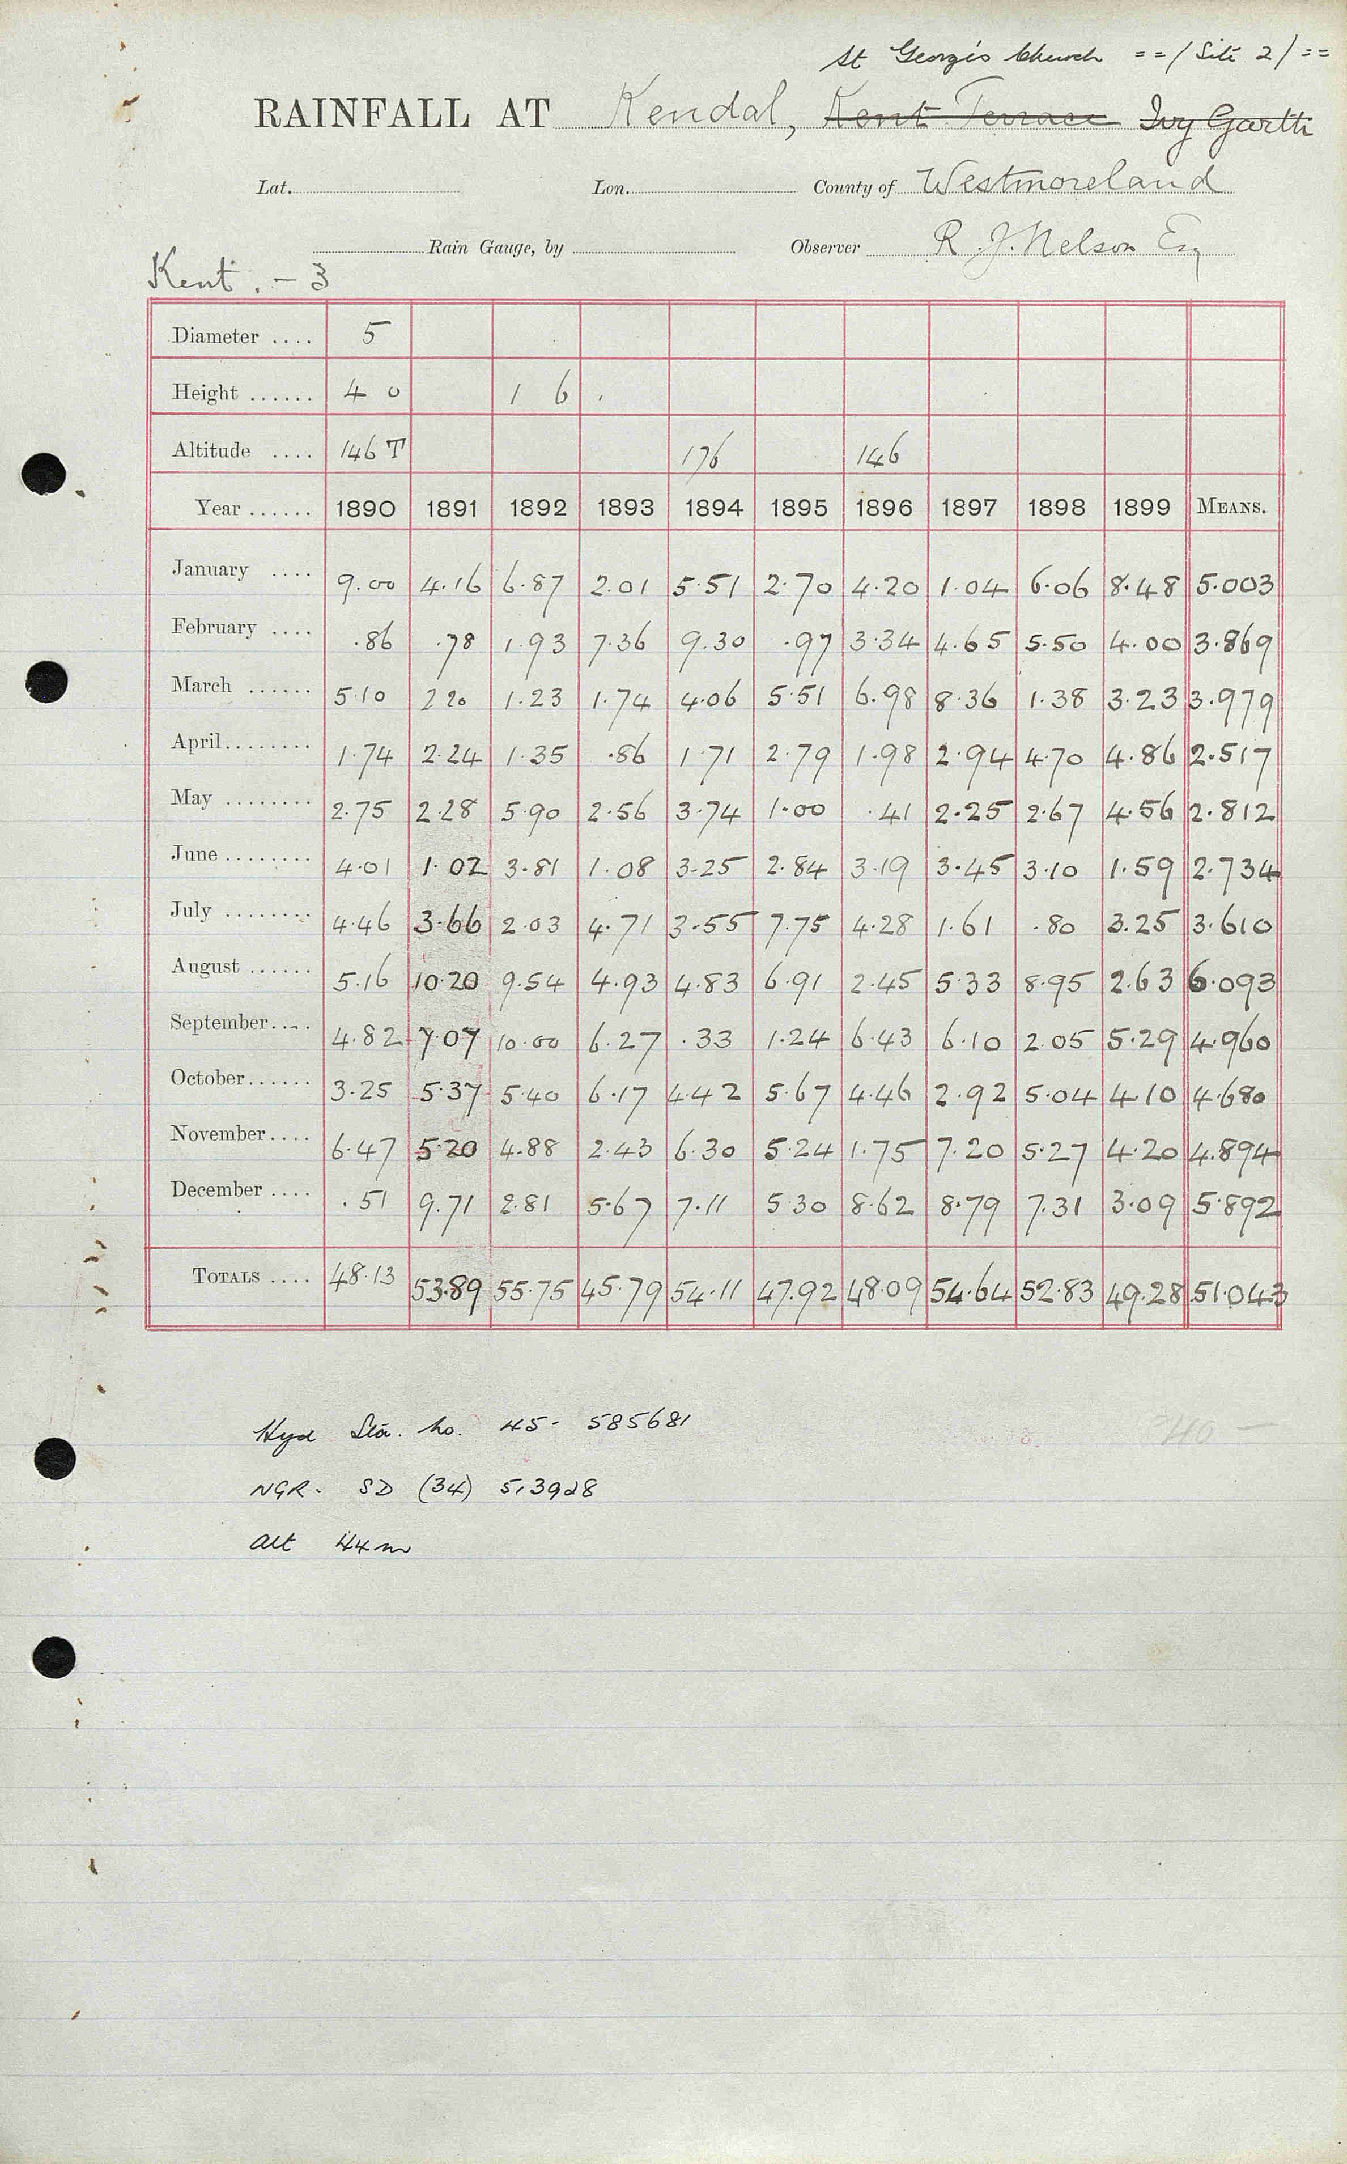 St George's Church == / Site 2 / ==
RAINFALL AT Kendal, Kent Terrace Ivy Garth
Lat. Lon. County of Westmoreland
Rain Gauge, by Observer R. J. Nelson Esq
Kent. - 3
Diameter .... 5
Height ...... 4 0 1 6
Altitude .... 146 T 176 146
Year ...... 1890 1891 1892 1893 1894 1895 1896 1897 1898 1899 MEANS.
January .... 9.00 4.16 6.87 2.01 5.51 2.70 4.20 1.04 6.06 8.48 5.003
February .... .86 .78 1.93 7.36 9.30 .97 3.34 4.65 5.50 4.00 3.869
March ...... 5.10 2 20 1.23 1.74 4.06 5.51 6.98 8.36 1.38 3.23 3.979
April........ 1.74 2.24 1.35 .86 1.71 2.79 1.98 2.94 4.70 4.86 2.517
May ........ 2.75 2.28 5.90 2.56 3.74 1.00 .41 2.25 2.67 4.56 2.812
June ........ 4.01 1.02 3.81 1.08 3.25 2.84 3.19 3.45 3.10 1.59 2.734
July ........ 4.46 3.66 2.03 4.71 3.55 7.75 4.28 1.61 .80 3.25 3.610
August ...... 5.16 10.20 9.54 4.93 4.83 6.91 2.45 5.33 8.95 2.63 6.093
September.... 4.82 7.07 10.00 6.27 .33 1.24 6.43 6.10 2.05 5.29 4.960
October...... 3.25 5.37 5.40 6.17 4.42 5.67 4.46 2.92 5.04 4.10 4.680
November.... 6.47 5.20 4.88 2.43 6.30 5.24 1.75 7.20 5.27 4.20 4.894
December .... .51 9.71 2.81 5.67 7.11 5.30 8.62 8.79 7.31 3.09 5.892
TOTALS .... 48.13 53.89 55.75 45.79 54.11 47.92 48.09 54.64 52.83 49.28 51.043
Hyd Sta. No. 45- 585681
NGR. SD (34) 513928
Alt 44m